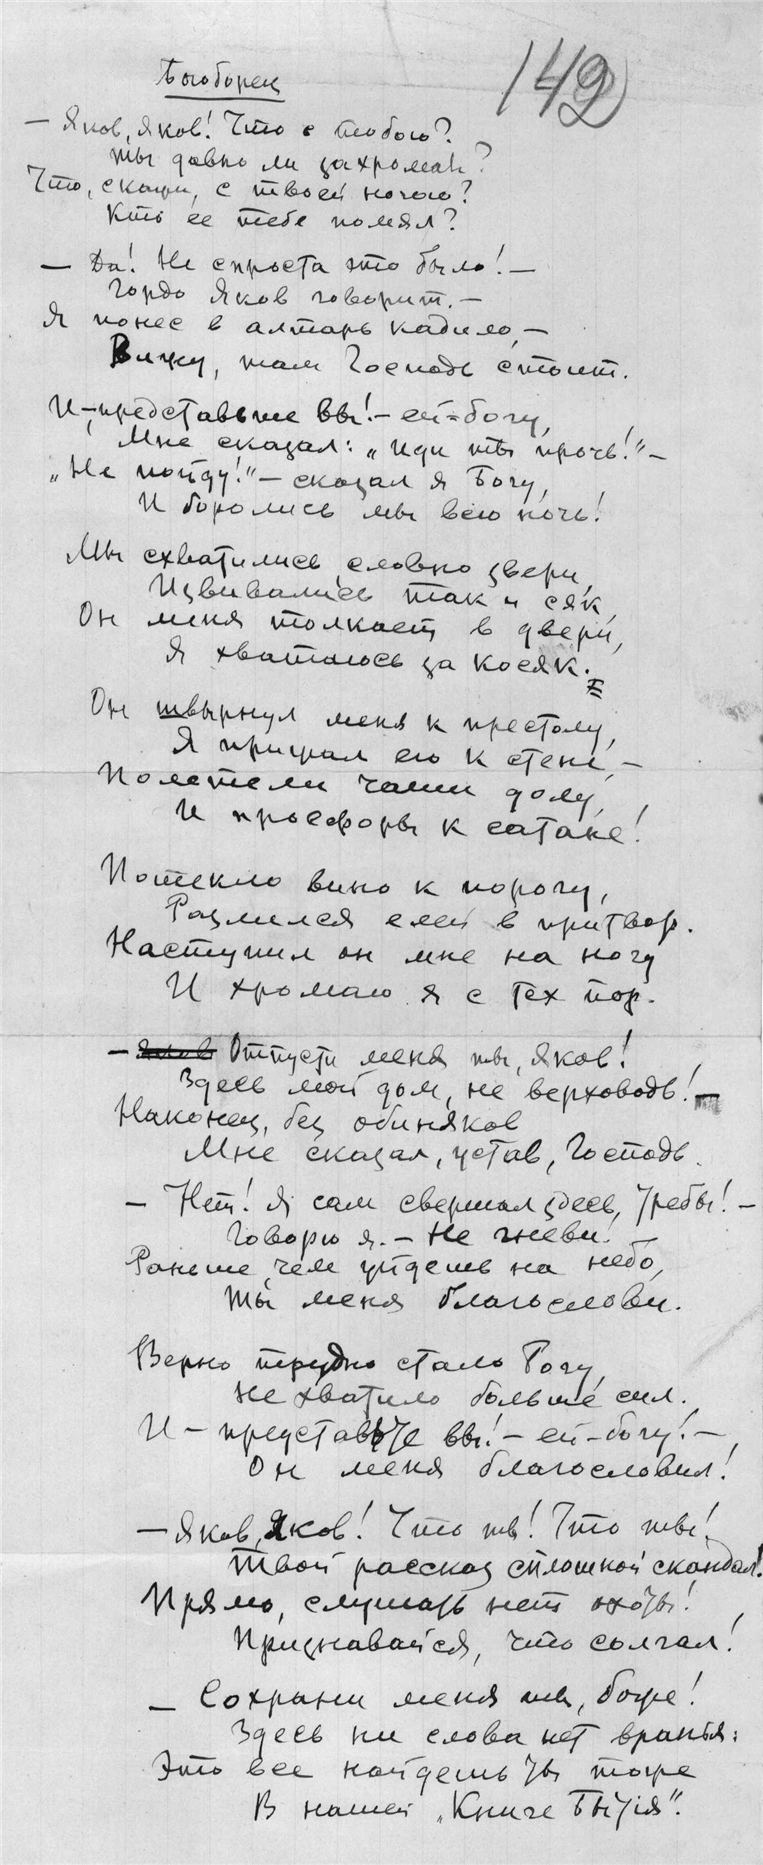 142
Богоборец
— Яков, Яков! Что с тобою?
Ты давно ли захромал?
Что, скажи, с твоей ногою?
Кто ее тебе помял?
— Да! Не спроста это было! —
Гордо Яков говорит. —
Я понес в алтарь кадило, —
Вижу, там Господь стоит.
И — представьте вы! — ей-богу,
Мне сказал: „иди ты прочь!" —
„Не пойду!" — сказал я Богу,
И боролись мы всю ночь!
Мы схватились словно звери,
Извивались так и сяк,
Он меня толкает в двери,
Я хватаюсь за косяк.
Он швырнул меня к престолу,
Я прижал его к стене, —
Полетели чаши долу,
И просфоры к сатане!
Потекло вино к порогу,
Разлился елей в притвор.
Наступил он мне на ногу
И хромаю я с тех пор.
— Яков Отпусти меня ты, Яков!
Здесь мой дом, не верховодь! —
Наконец, без обиняков
Мне сказал, устав, Господь.
— Нет! Я сам свершал здесь требы! —
Говорю я. — Не гневи!
Раньше, чем уйдешь на небо,
Ты меня благослови.
Верно трудно стало Богу,
Не хватило больше сил.
И — представьте вы! — ей-богу! —
Он меня благословил!
— Яков, Яков! Что ты! Что ты!
Твой рассказ сплошной скандал!
Прямо, слушать нет охоты!
Признавайся, что солгал!
— Сохрани меня ты, боже!
Здесь ни слова нет вранья:
Это все найдешь ты тоже
В нашей „Книге Бытія".